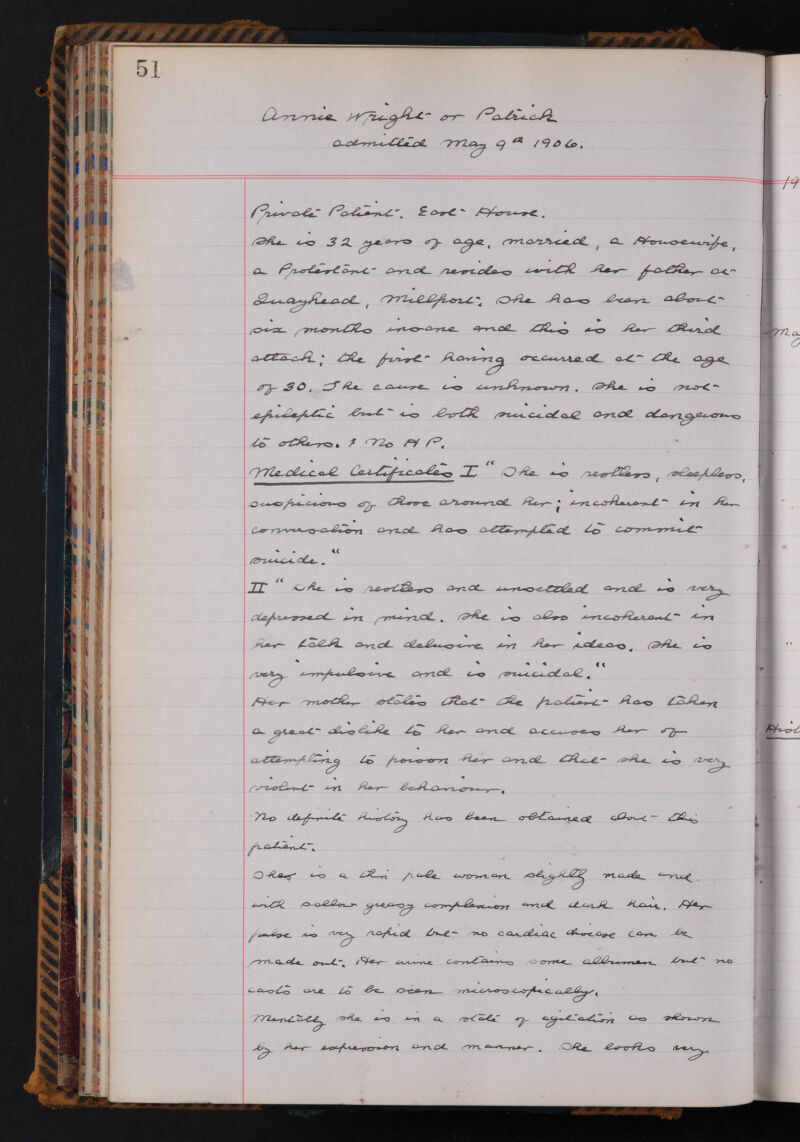 51
Annie Wright or Patrick
admitted May 9th 1906.
Private Patient. East House.
She is 32 years of age, married, a Housewife,
a Protestant and resides with her father at
Quayhead, Millport. She has been about
six months insane and this is her third
attack; the first having occurred at the age
of 30. The cause is unknown. She is not
epileptic but is both suicidal and dangerous
to others. & No H P.
Medical Certificates I " She is restless, sleepless,
suspicious of those around her; incoherent in her
conversation and has attempted to commit
suicide."
II " She is restless and unsettled and is very
depressed in mind. She is also incoherent in
her talk and delusive in her ideas. She is
very impulsive and is suicidal."
Her mother states that the patient has taken
a great dislike to her and accuses her of
attempting to poison her and that she is very
violent in her behaviour.
No definite history has been obtained about this
patient.
She is a thin pale woman slightly made and
with sallow greasy complexion and dark hair. Her
pulse is very rapid but no cardiac disease can be
made out. Her urine contains some albumen but no
casts are to be seen microscopically.
Mentally she is in a state of agitation as shown
by her expression and manner. She looks very
19
Ma
Hist